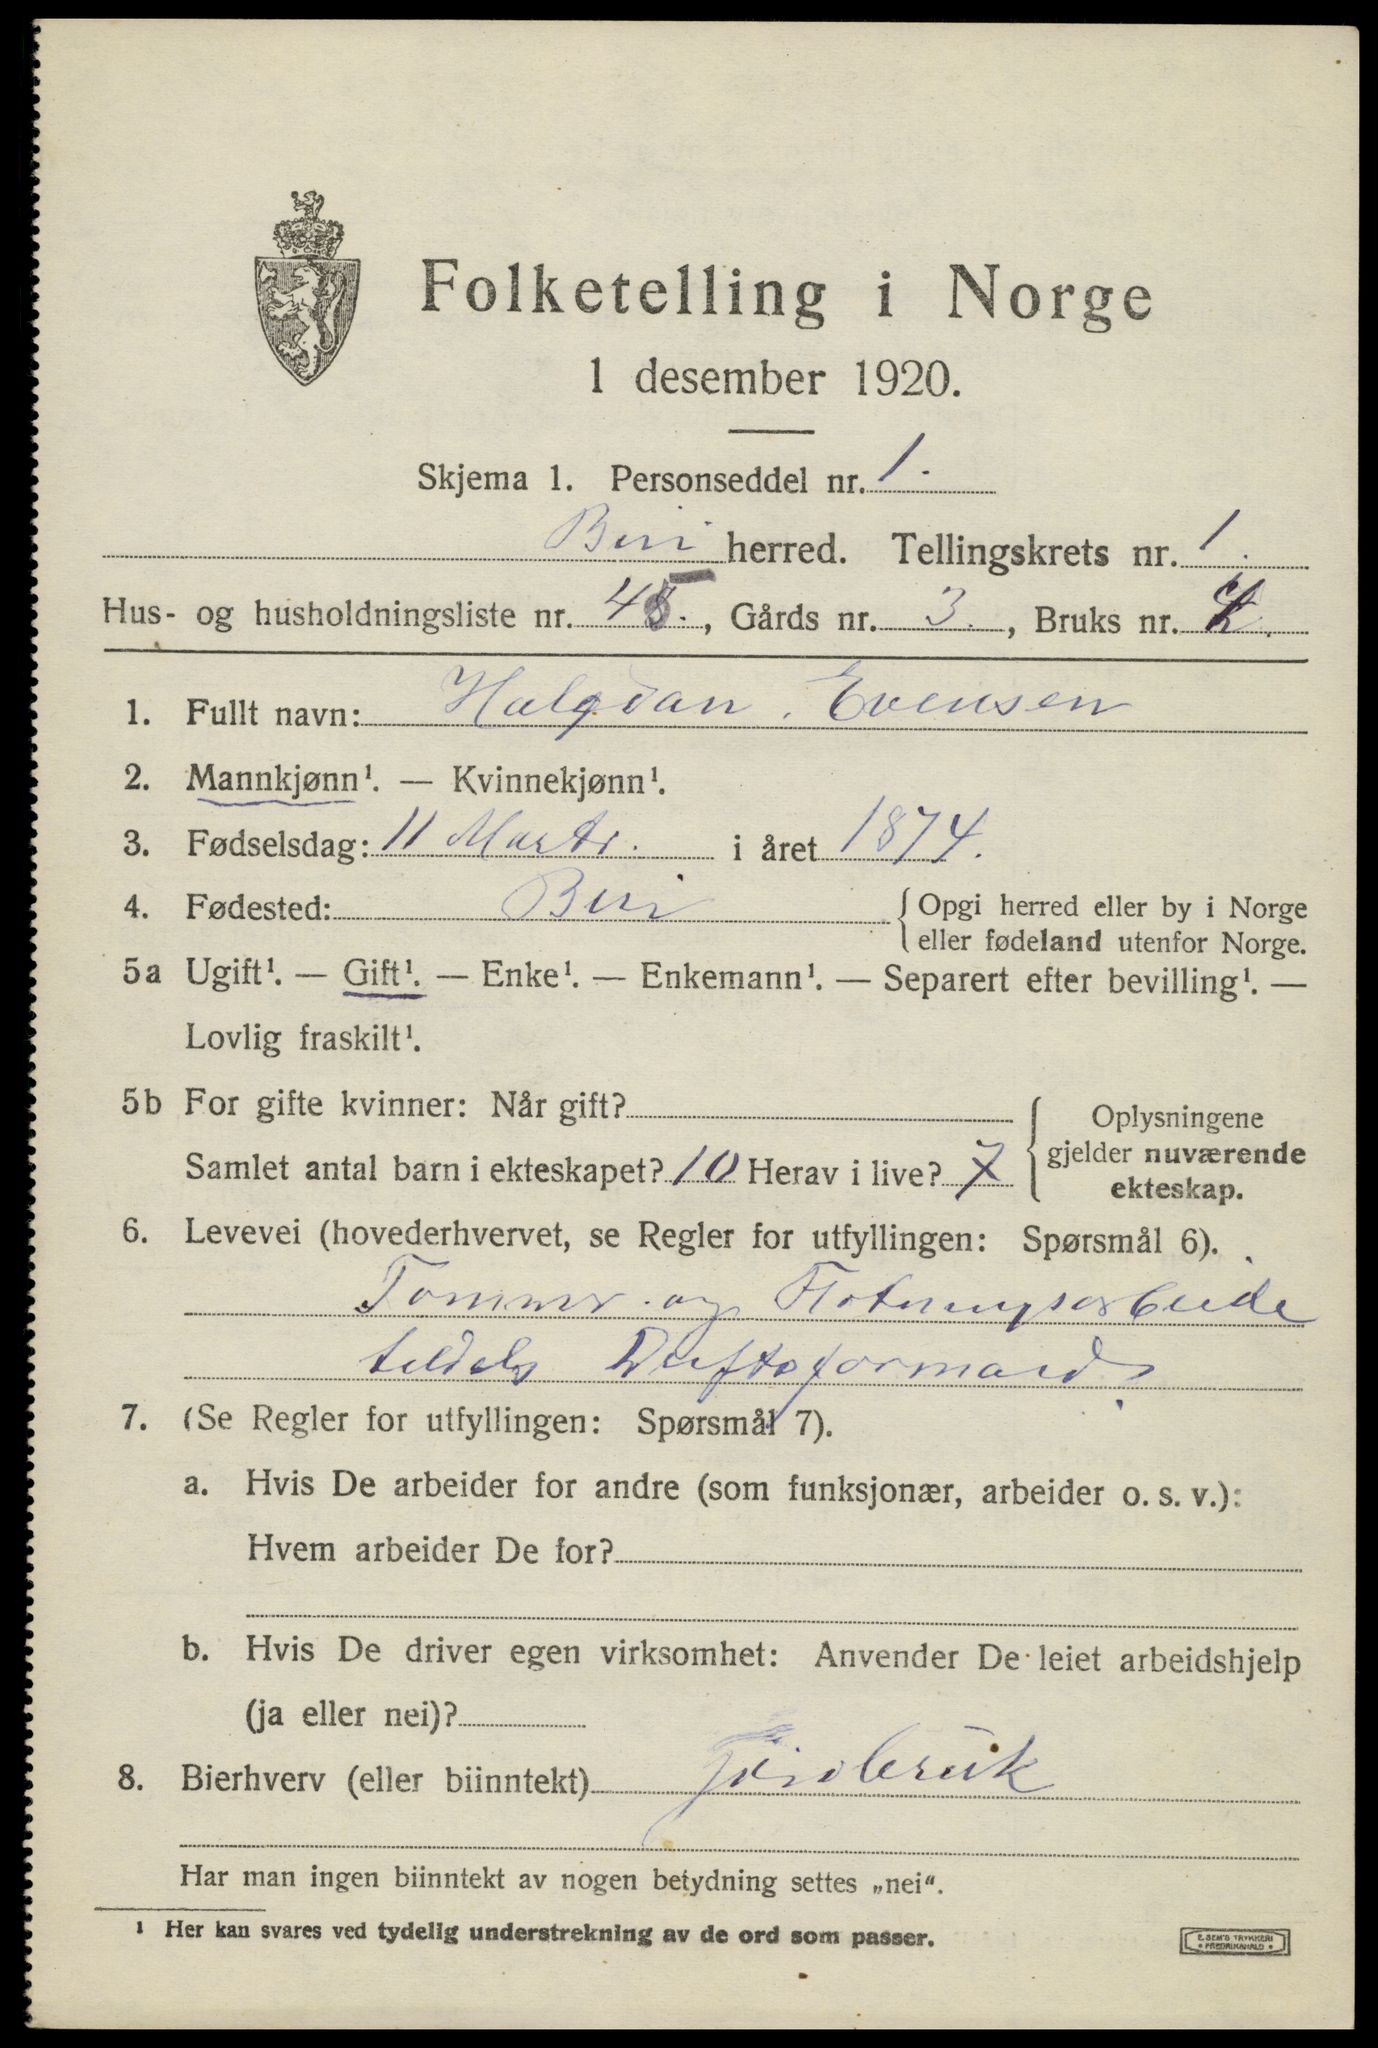 Folketelling i Norge
1 desember 1920.
Skjema 1. Personseddel nr. 1.
Biri herred. Tellingskrets nr. 1.
Hus- og husholdningsliste nr. 45., Gårds nr. 3., Bruks nr.
1. Fullt navn: Halvdan Evensen
2. Mannkjønn¹. — Kvinnekjønn¹.
3. Fødselsdag: 11 Marts. i året 1874.
4. Fødested: Biri {Opgi herred eller by i Norge
eller fødeland utenfor Norge.
5a Ugift¹. — Gift¹. — Enke¹. — Enkemann¹. — Separert efter bevilling¹. —
Lovlig fraskilt¹.
5b For gifte kvinner: Når gift?
Samlet antal barn i ekteskapet? 10 Herav i live? 7
{Oplysningene
gjelder nuværende
ekteskap.
6. Levevei (hovederhvervet, se Regler for utfyllingen: Spørsmål 6).
Tømmer og Fløtningsarbeide
tildels Driftsformand
7. (Se Regler for utfyllingen: Spørsmål 7).
a. Hvis De arbeider for andre (som funksjonær, arbeider o. s. v.):
Hvem arbeider De for?
b. Hvis De driver egen virksomhet: Anvender De leiet arbeidshjelp
(ja eller nei)?
8. Bierhverv (eller biinntekt) Jordbruk
Har man ingen biinntekt av nogen betydning settes „nei“.
¹ Her kan svares ved tydelig understrekning av de ord som passer.
E. SEM'S TRYKKERI
FREDRIKSHALD